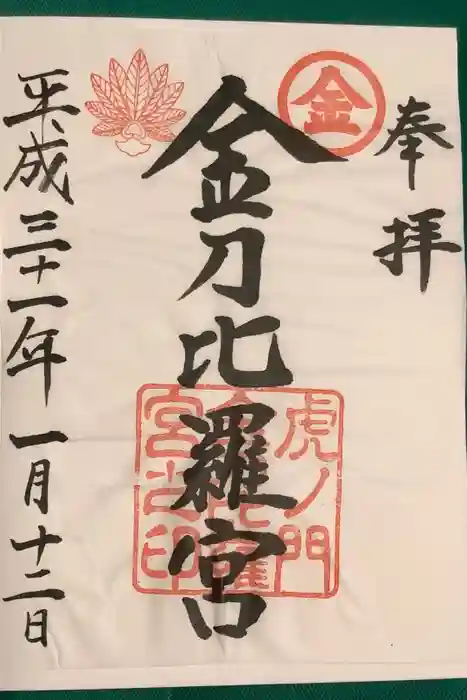 奉拝
金
金刀比羅宮
虎ノ門
金刀比羅
宮之印
平成三十一年一月十二日